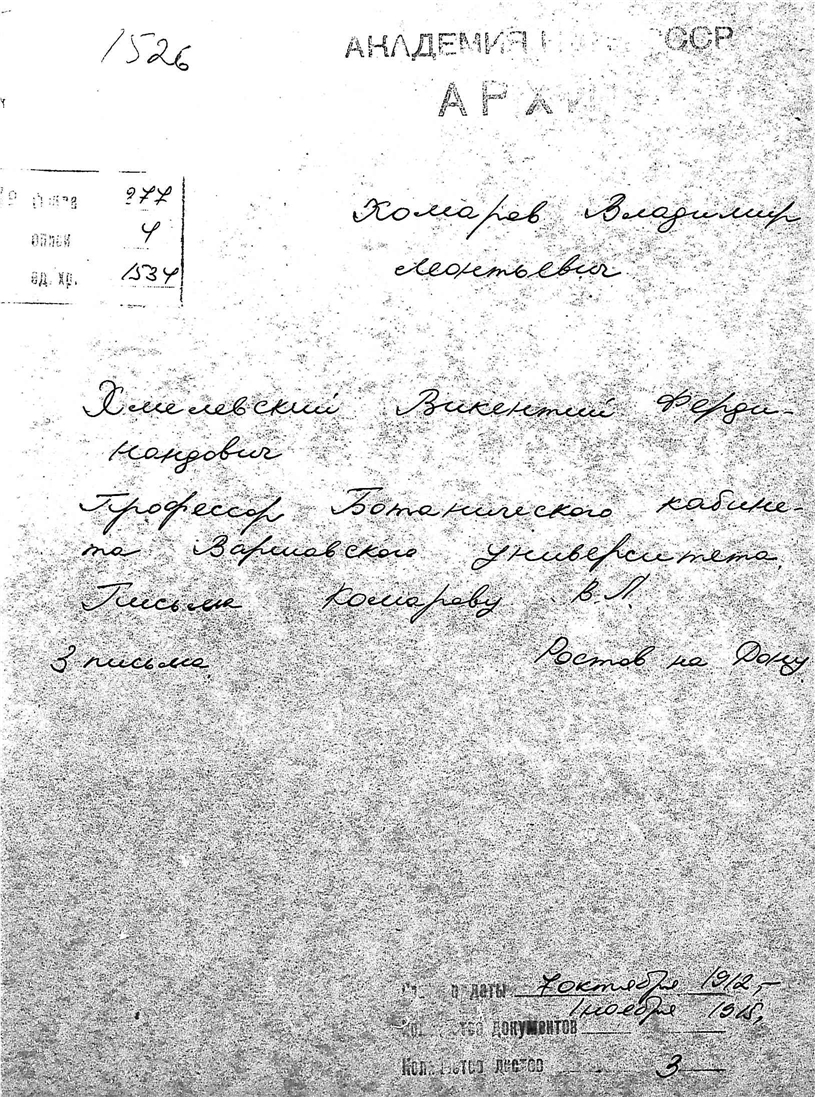 1526
АКАДЕМИЯ СССР
АРХИВ
фонд 277
опись 4
ед. хр. 1534
Комаров Владимир
Леонтьевич
Хмелевский Викентий Ферди-
нандович
Профессор Ботанического кабине-
та Варшавского университета.
Письма Комарову В.Л.
3 письма. Ростов на Дону.
даты 7 октября 1912 –
1 ноября 1915,
Количество документов
Количество листов 3